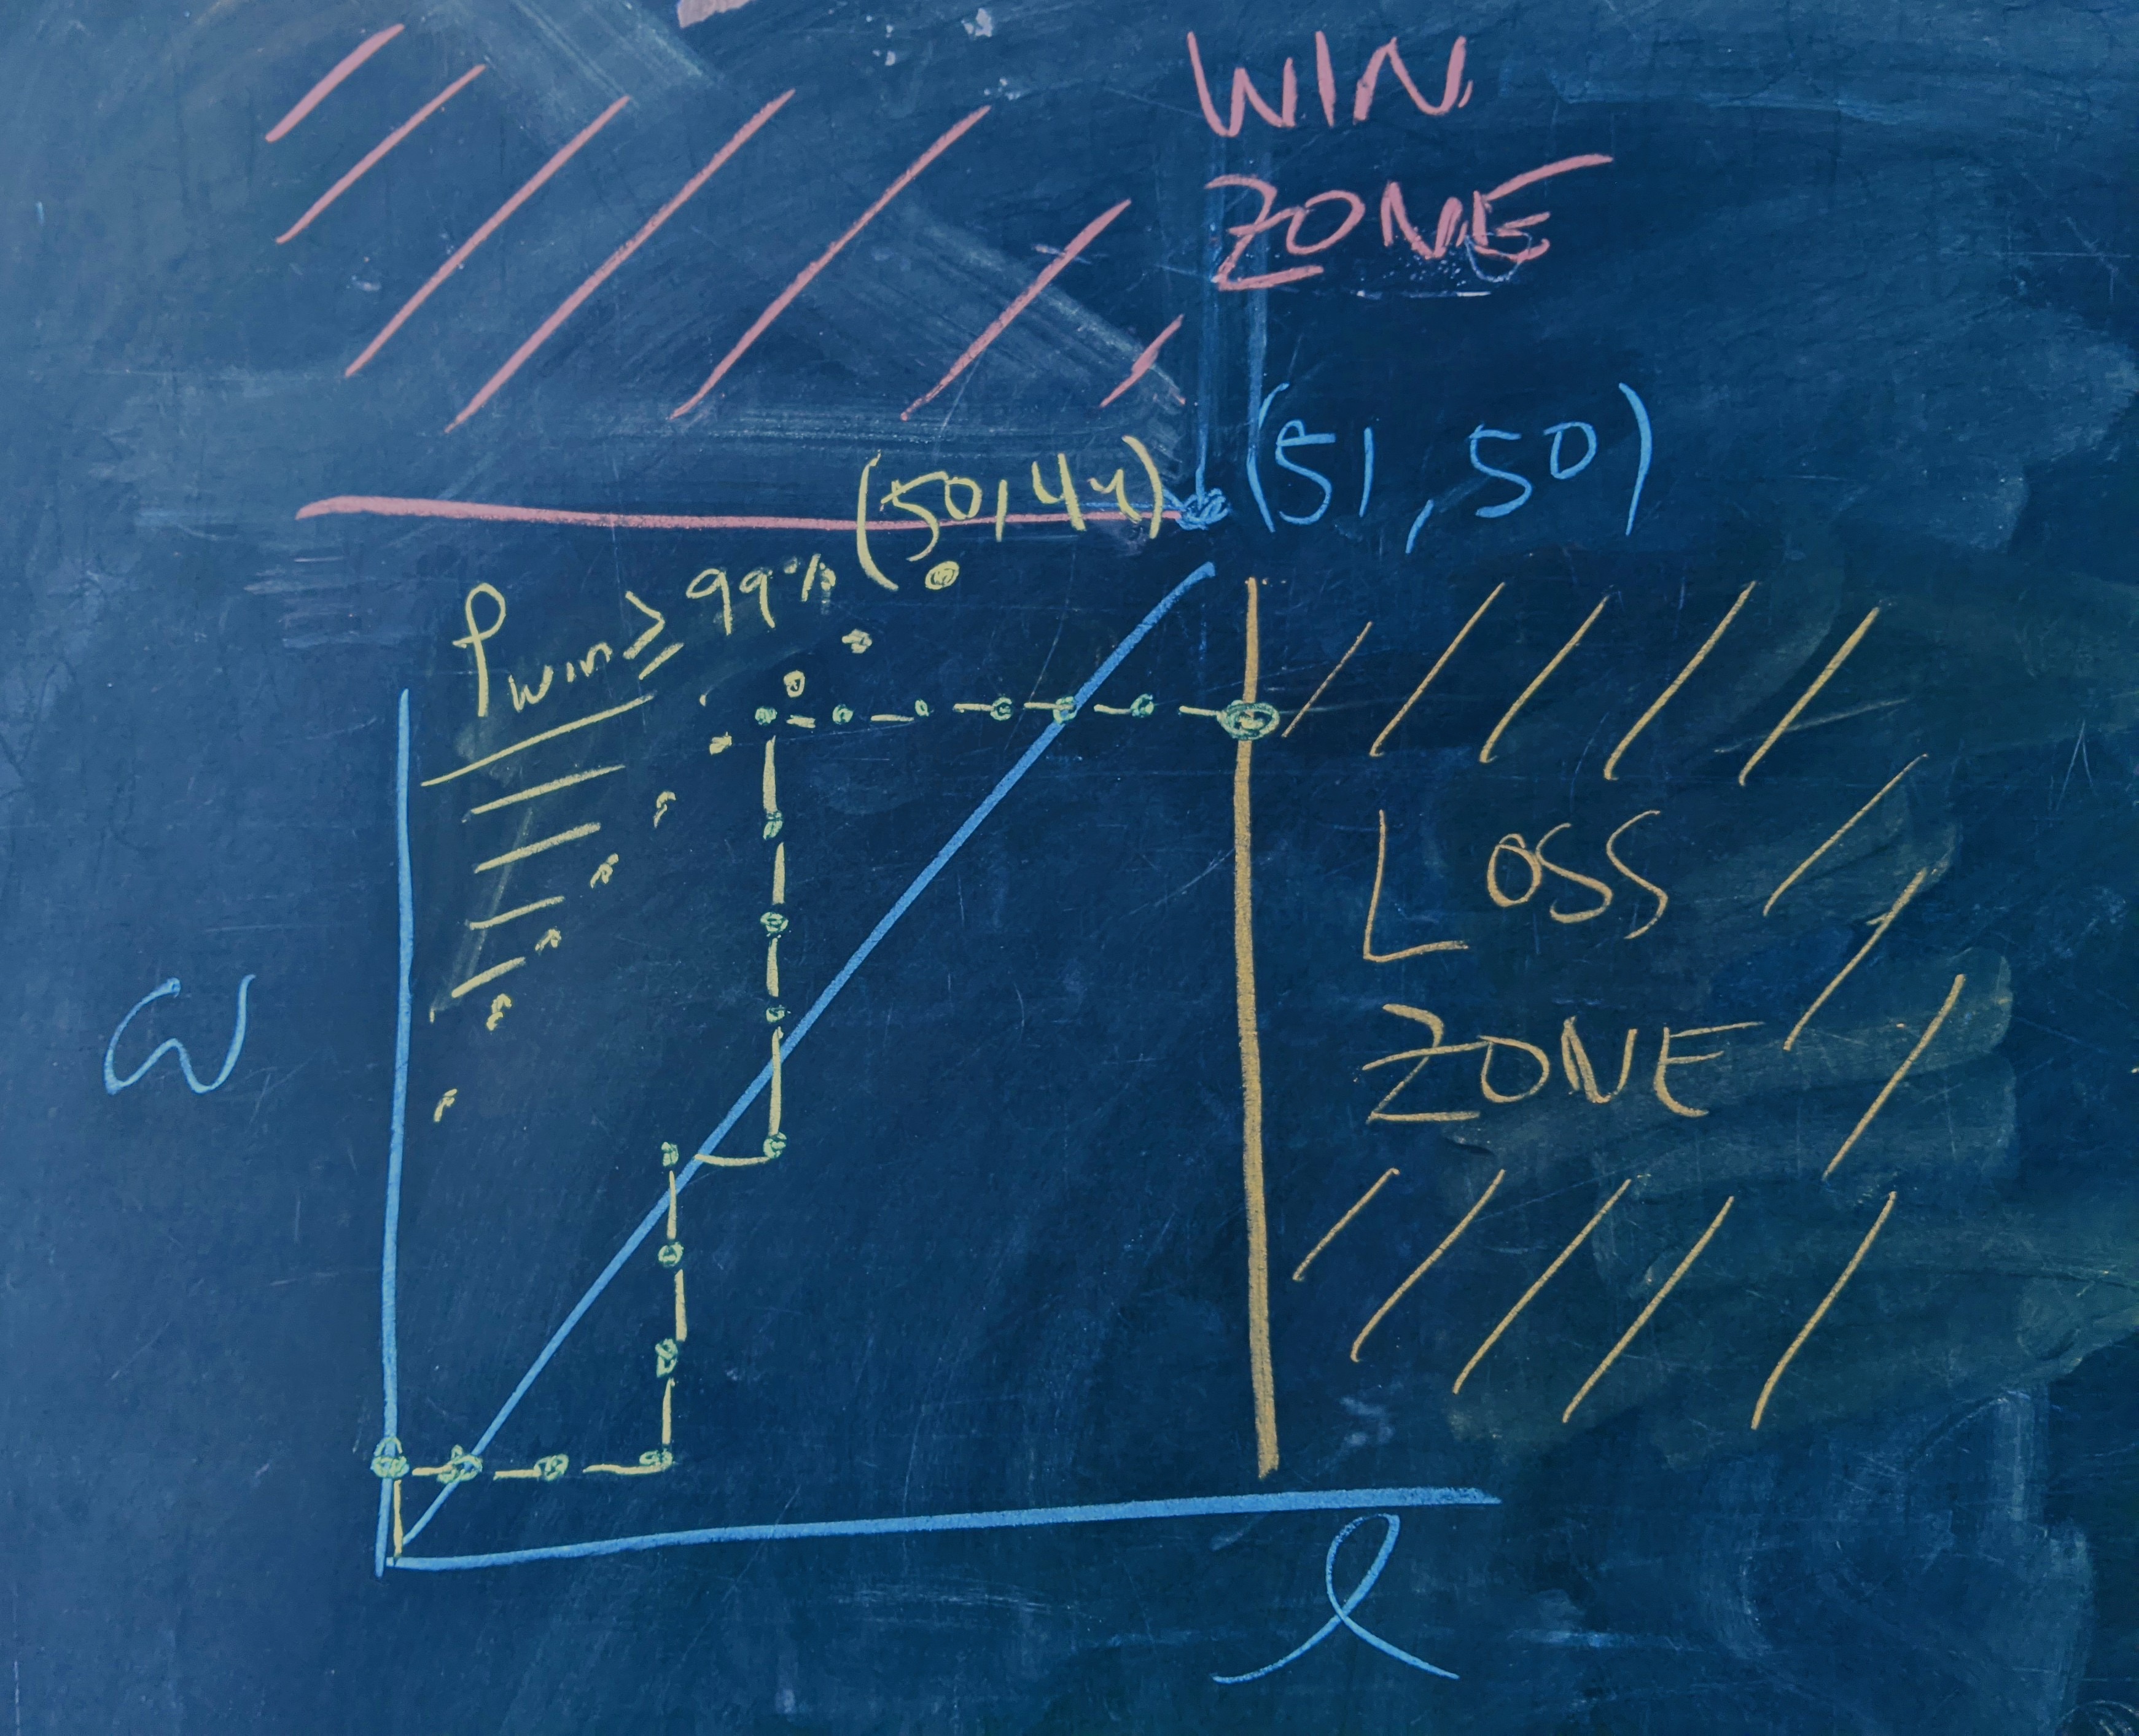 WIN
ZONE
(50,44)
(51,50)
Pwin ≥ 99%
LOSS
ZONE
ω
l